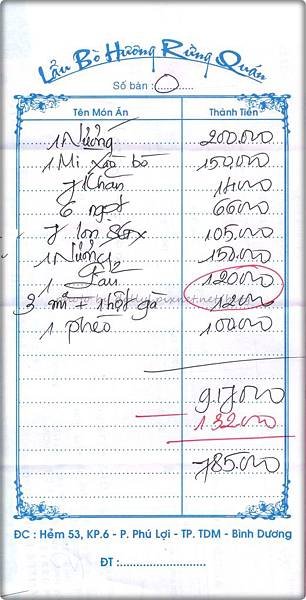 Lẩu Bò Hương Rừng Quán
Số bàn : ..........
Tên Món Ăn Thành Tiền
1 Nướng 200.000
1 Mì xào bò 150.000
7 Khăn 14000
6 ngọt 66000
7 lon SGX 105.000
1 Nướng 1/2 150.000
1 Lẩu 120.000
3 mì + 1 hột gà 12000
1 phèo 100.000
917.000
132.000
785.000
ĐC : Hẻm 53, KP.6 - P. Phú Lợi - TP. TDM - Bình Dương
ĐT :..............................